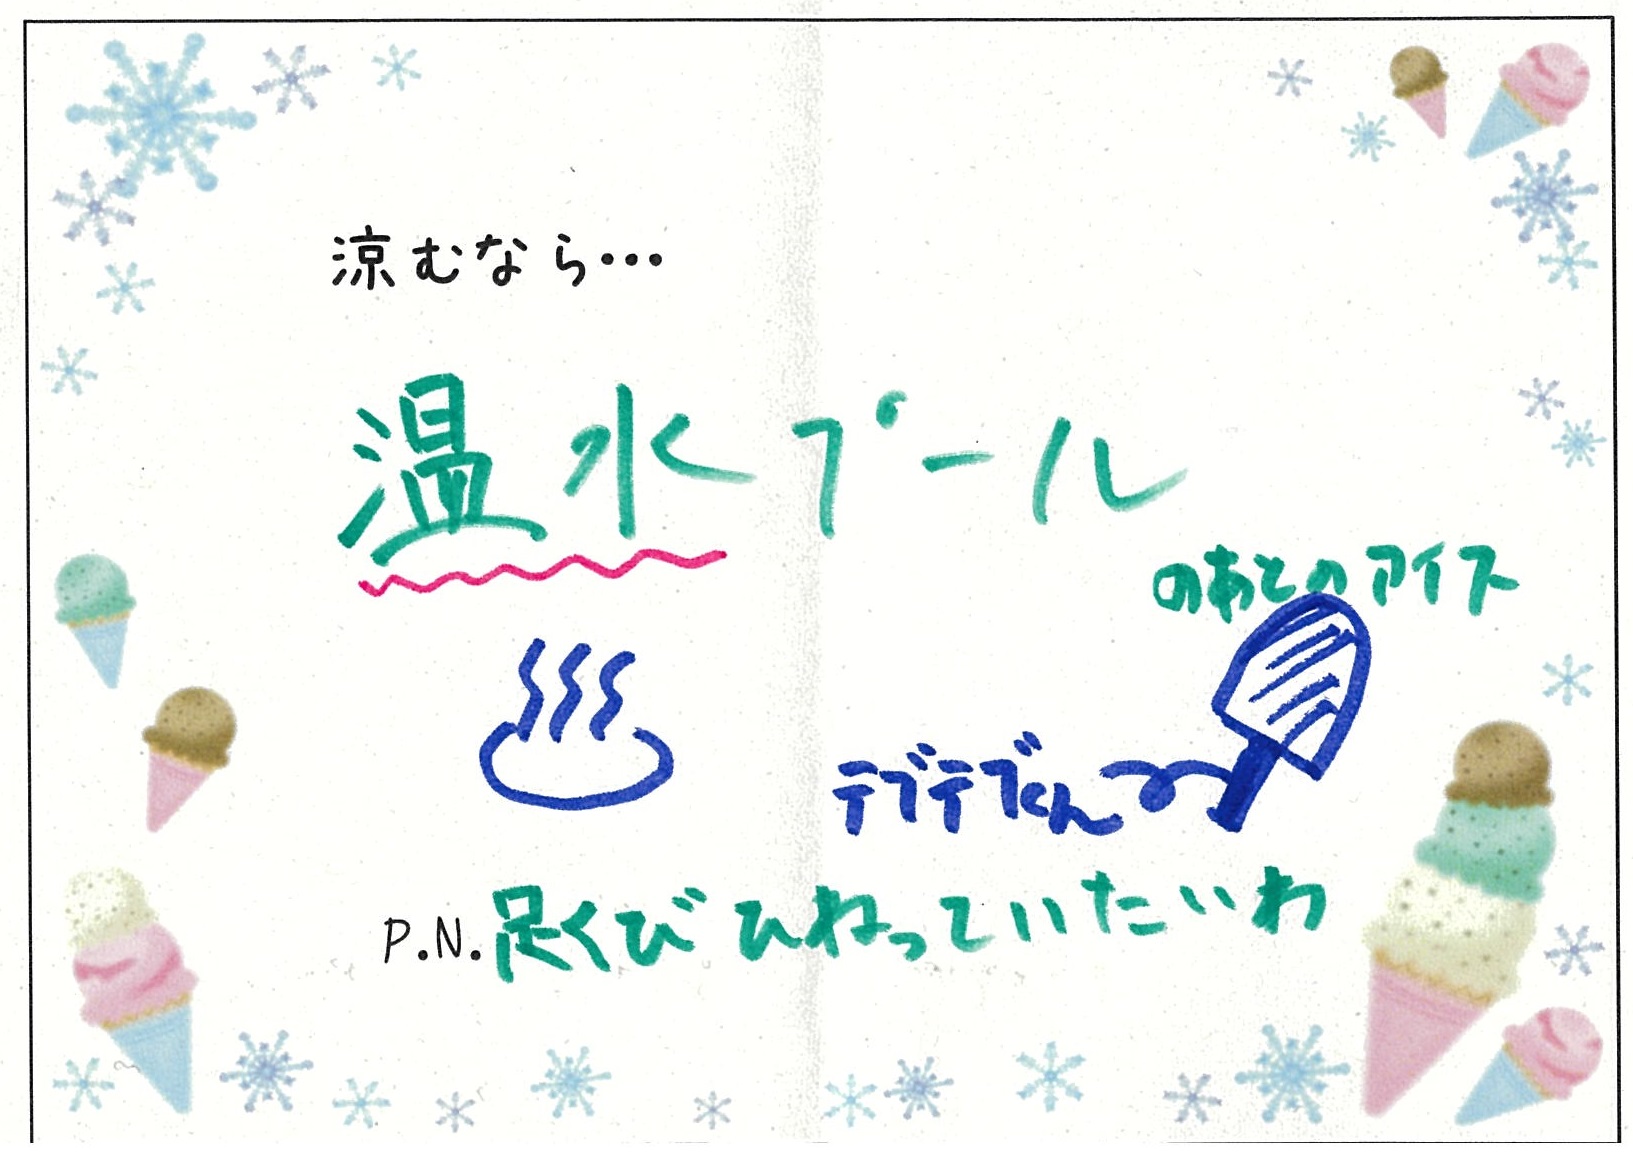 涼むなら…
温水プール
のあとのアイス
デブデブくん
P.N.足くびひねっていたいわ